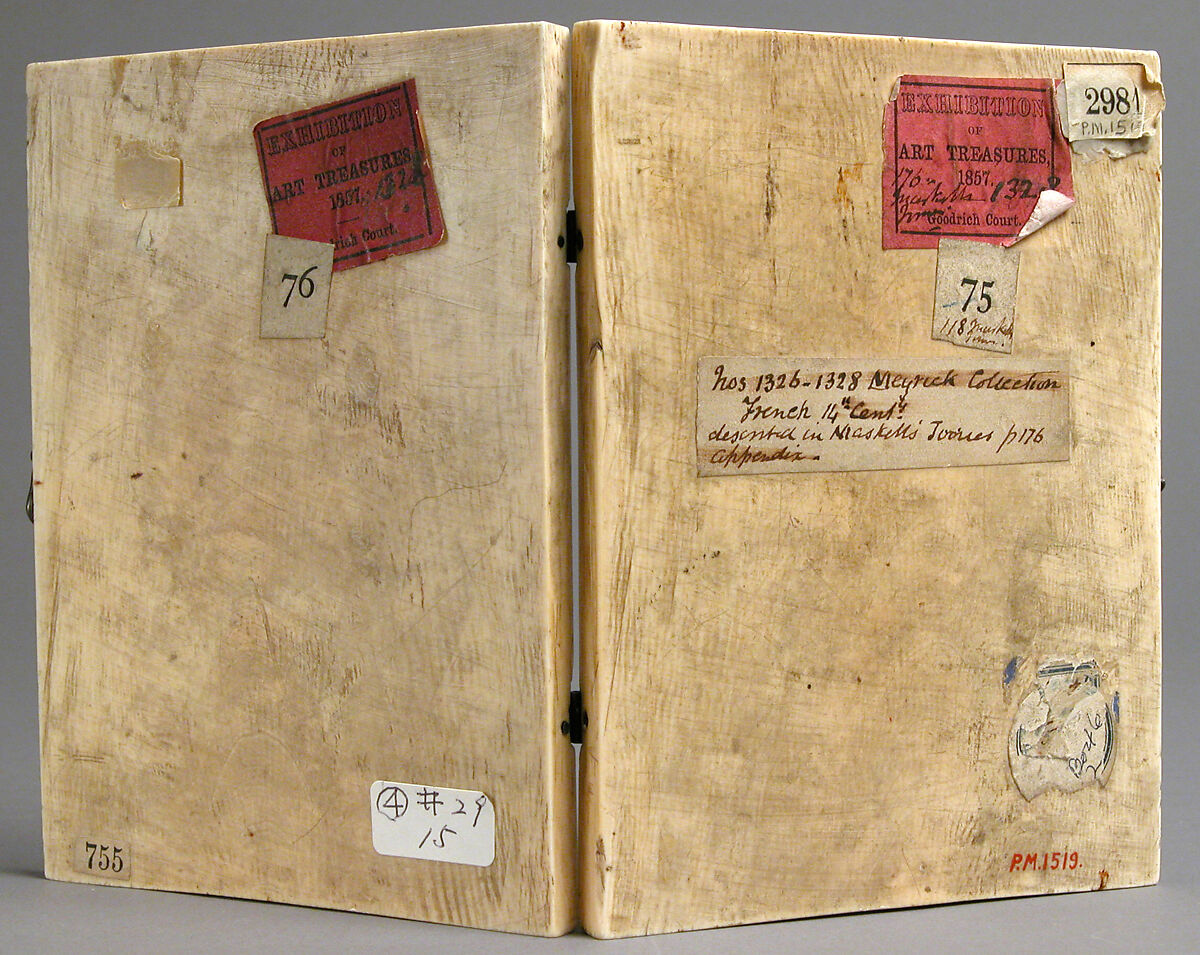 EXHIBITION
OF
ART TREASURES,
1857.
rich Court.
76
④ # 29
15
755
EXHIBITION
OF
ART TREASURES,
1857.
176
Maskell's 1328
Goodrich Court.
2981
P.M.151
75
118
Nos 1326-1328 Meyrick Collection
French 14th Centy.
described in Maskell's Ivories p 176
appendix.
P.M.1519.